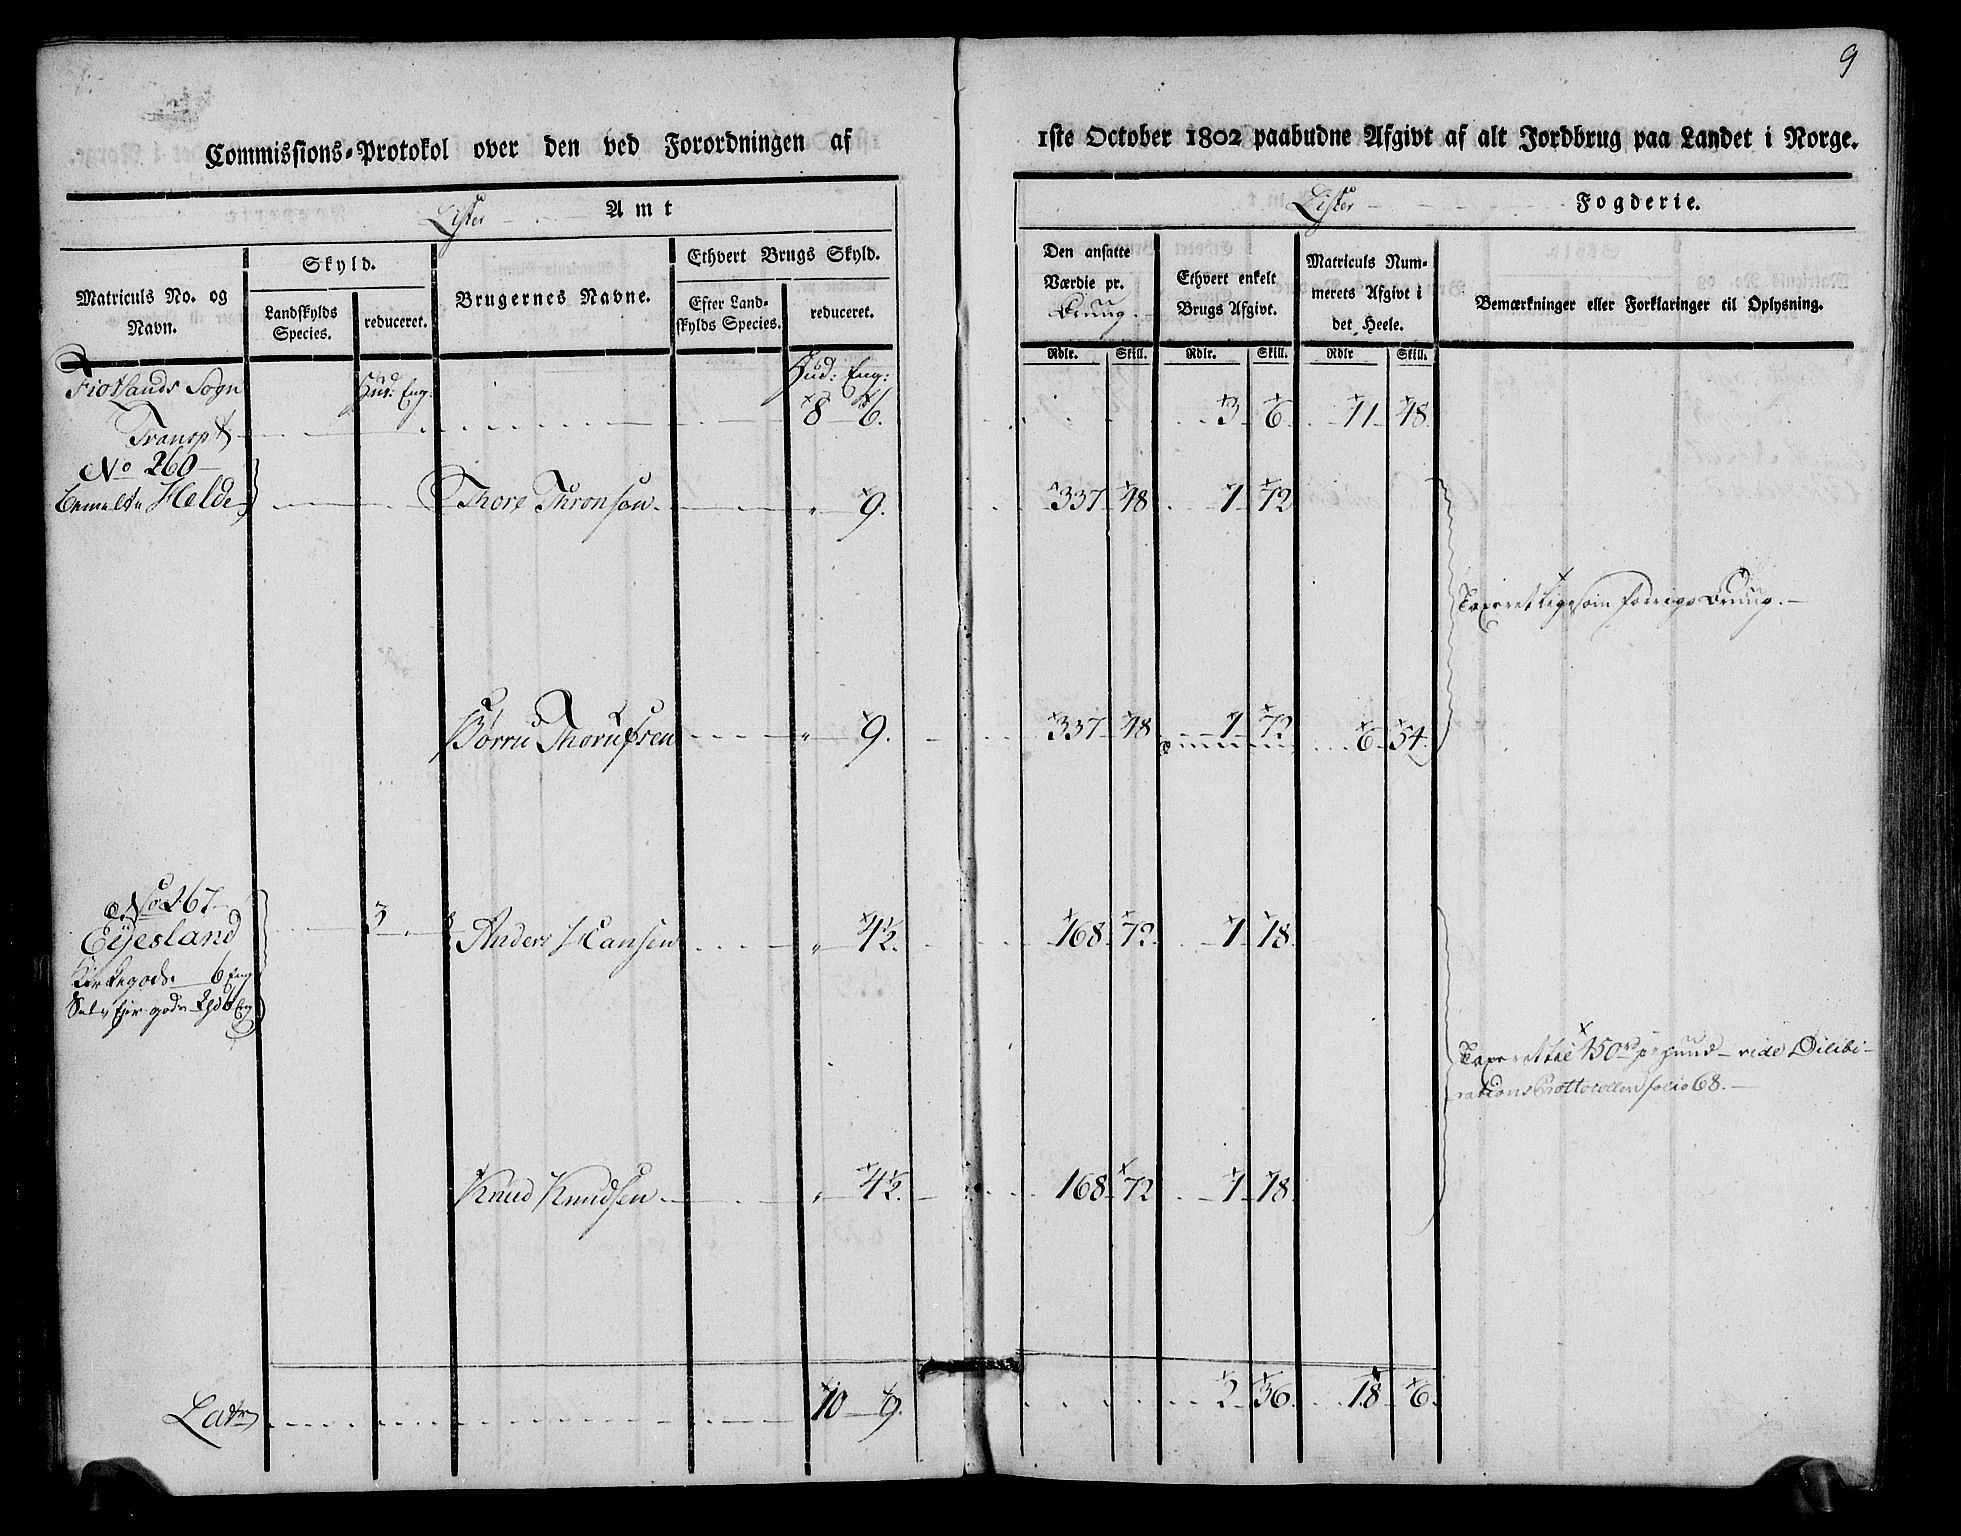 9
Commissions-Protokol over den ved Forordningen af 1ste October 1802 paabudne Afgivt af alt Jordbrug paa Landet i Norge.
Lister Amt
Lister Fogderie.
Matriculs No. og Navn.
Skyld.
Landskylds Species.
reduceret.
Brugernes Navne.
Ethvert Brugs Skyld.
Efter Landskylds Species.
reduceret.
Den ansatte Værdie pr.
Ethvert enkelt Brugs Afgivt.
Matriculs Nummerets Afgivt i det Heele.
Bemærkninger eller Forklaringer til Oplysning.
Rdlr. Skill. Rdlr. Skill. Rdlr Skill.
Fiotlands Sogn Hud: Eng: Hud: Eng:
Transpt 8 6. 3 6 11 48.
No 260
Helde Thore Thronsen 9. 337 48 1 72
Taxeret ligesom
9. 337 48 1 72 6 54.
No 267
Eijesland 3 Anders Hansen 4½. 168 72 1 18.
Kirkegods 6 Eng
Taxeret til 450 rd pr hund vide Delibe-
rations Prottocollen folio 68.
Knud Knudsen 4½. 168 72 1 18.
Latr 10 9. 2 36 18 6.